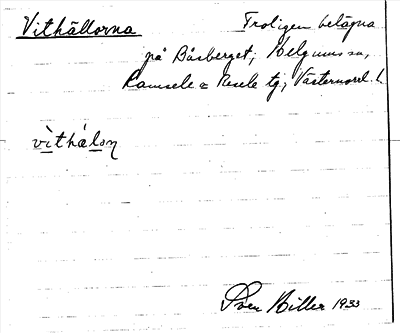 Vithällorna
Troligen belägna
på Båsberget; Helgums sn,
Ramsele o Resele tg; Västernorrl. l.
vithälon
Sven Hiller 1933